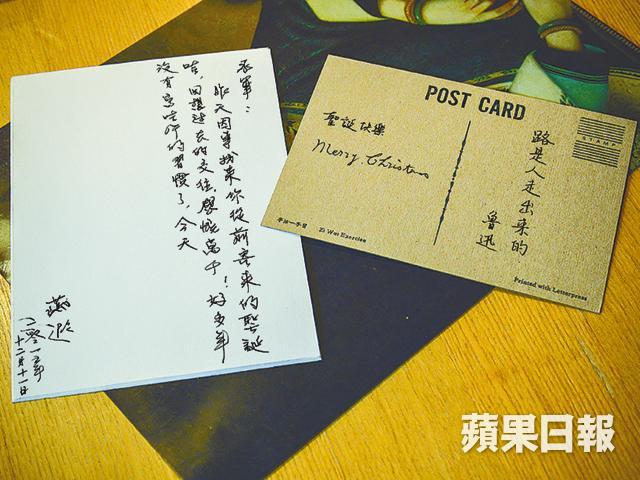 昨天因事找來你從前寄來的聖誕
咭，回想過去的交往，感慨萬千！好多年
沒有寄咭的習慣了，今天
燕遐
二零一三年
十二月十一日
POST CARD
聖誕快樂
Merry Christmas
路是人走出来的
魯迅
STAMP
Zi Wut Exercise
Printed with Letterpress
蘋果日報